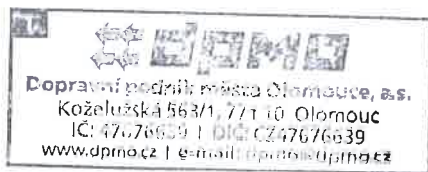 DPMO
Dopravní podnik města Olomouce, a.s.
Koželužská 563/1, 771 10 Olomouc
IČ: 47676639 | DIČ: CZ47676639
www.dpmo.cz | e-mail: dpmo@dpmo.cz